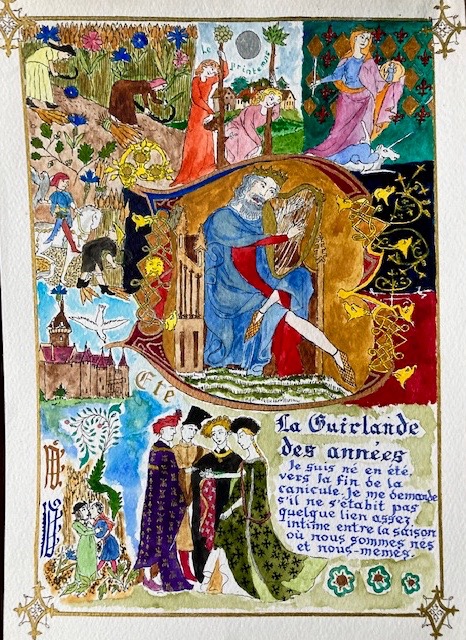 Le
Printemps
Eté
La Guirlande
des années
Je suis né en été,
vers la fin de la
canicule. Je me demande
s'il ne s'établit pas
quelque lien assez
intime entre la saison
où nous sommes nés
et nous-mêmes.